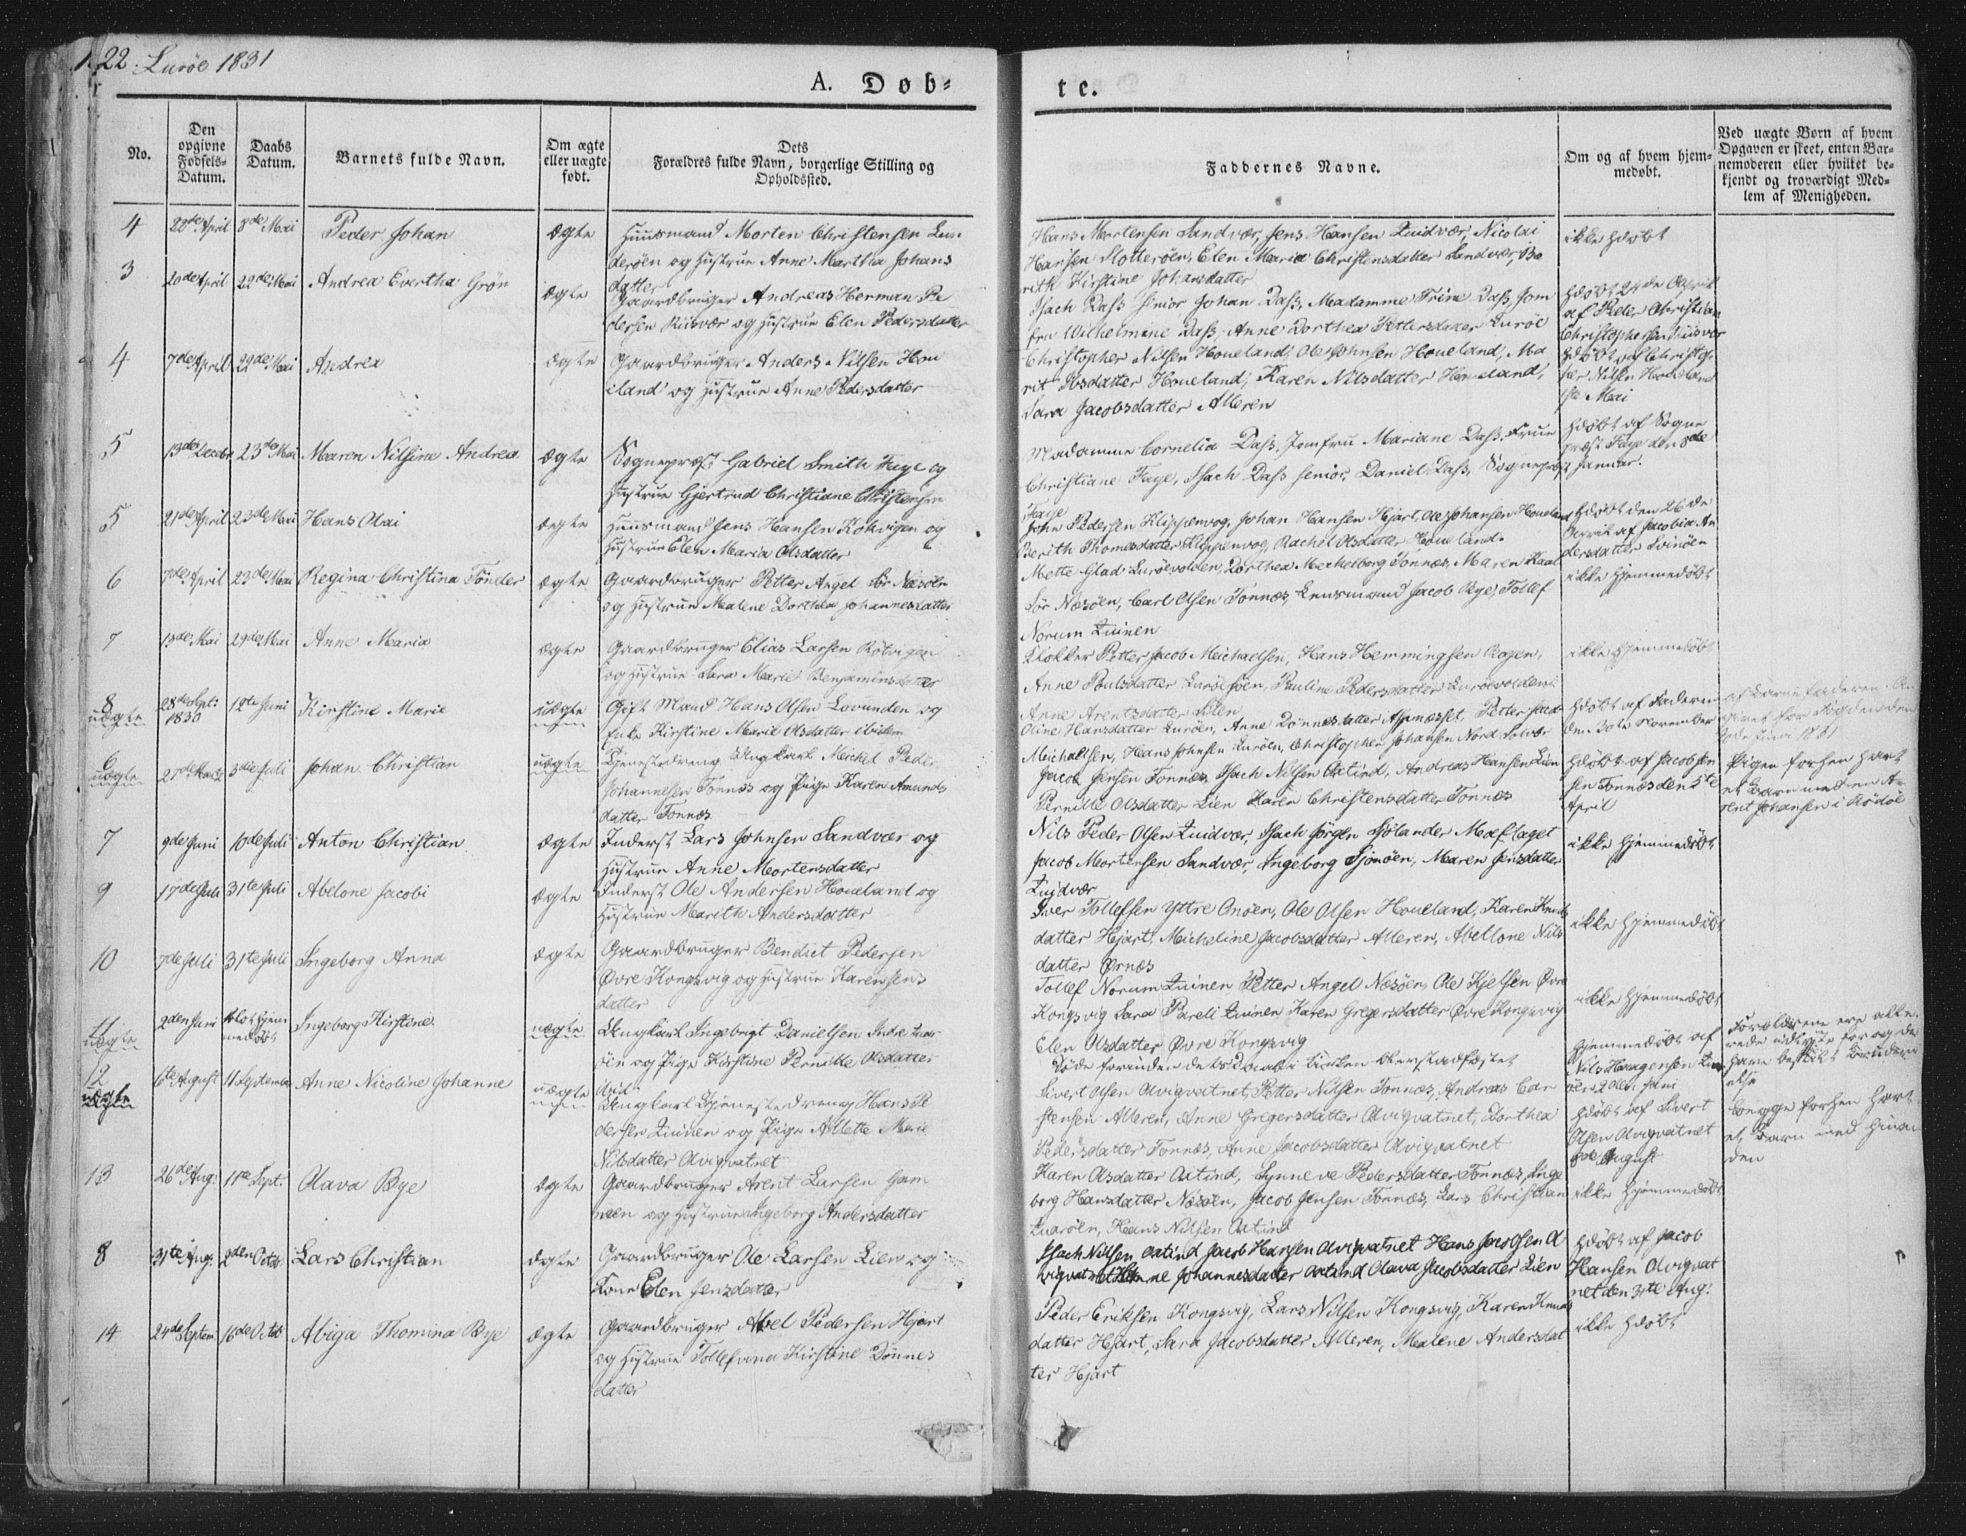 22. Lurøe 1831
A. Døb=
te.
No.
Den opgivne Fødsels-Datum.
Daabs Datum.
Barnets fulde Navn.
Om ægte eller uægte født.
Dets Forældres fulde Navn, borgerlige Stilling og Opholdssted.
Faddernes Navne.
Om og af hvem hjemmedøbt.
Ved uægte Børn af hvem Opgaven er skeet, enten Barnemoderen eller hviltet bekjendt og troværdigt Medlem af Menigheden.
4 22de April 8de Mai Peder Johan ægte Huusmand Morten Christensen Lun
derøen og Hustrue Anne Martha Johans
datter
Hans Mortensen Sandvær, Jens Hansen Zuidvær, Nicolai
Hansen Slotterøen, Elen Maria Christensdatter Sandvær, Be
rith Kirstine Johansdatter
ikke hdøbt
3 20de April 22de Mai Andrea Evertha Grön ægte Gaardbruger Andreas Herman Pe
dersen Kusvær og Hustrue Elen Pedersdatter
Isach Dass senior Johan Dass, Madamme Trine Dass, Jom
fru Wilhelmine Dass, Anne Dorthea Pettersdatter Lurøe
hdøbt 24de April
af Peder Christian
Christophersen
4 7de April 22de Mai Andrea ægte Gaardbruger Anders Nilsen Hou
eland og Hustrue Anne Pedersdatter
Christopher Nilsen Houeland, Ole Johnsen Houeland, Ma
rit Ibsdatter Houeland, Karen Nilsdatter Houeland,
Sara Jacobsdatter Alleren
hdøbt af Christo
fer Nilsen Houeland
1ste Mai
5 13de Decebr 23de Mai Maren Nilsine Andrea ægte Sognepræst Gabriel Smith Faye og
Hustrue Gjertrud Christiane Christensen
Madamme Cornelia Dass, Jomfru Mariane Dass, Frue
Christiane Faye, Isach Dass senior, Daniel Dass, Sognepræst
Faye
hdøbt af Sogne
præst Faye den 8de
Januar.
5 21de April 23de Mai Hans Olai ægte Huusmand Jens Hansen Kokvigen og
Hustrue Elen Maria Olsdatter
John Pedersen Klippenvog, Johan Hansen Hjart, Ole Johansen Houeland
Berith Thomesdatter Klippenvog, Rachel Olsdatter Houeland.
hdøbt den 26de
April af Jacobia An
dersdatter Svinøen
6 7de April 23de Mai Regina Christina Tönder ægte Gaardbruger Petter Angel Sör Næsöen
og Hustrue Malene Dorthea Johannesdatter
Mette Glad Lurøevolden, Dorthea Mechelborg Tonnes, Maren Kaal
Sör Næsöen, Carl Olsen Tonnes, Lensmand Jacob Bye, Tollef
Norum Zuinen
ikke hjemmedøbt
7 13de Mai 29de Mai Anne Maria ægte Gaardbruger Elias Larsen Rötvigen
og Hustrue Sara Marie Benjaminsdatter
Klokker Petter Jacob Meichaelsen, Hans Hemmingsen Aagen,
Anne Poulsdatter Lurøesøen, Pauline Pedersdatter Lurøevolden
Anne Arentsdatter Silen
ikke hjemmedøbt
8 uægte 28de Sept: 1830 12te Juni Kirstine Marie uægte Gift Mand Hans Olsen Lovunden og
Enke Kirstine Marie Olsdatter ibidem
Oline Hansdatter Lurøen, Anne Dönnesdatter Aspnæsset, Petter Jacob
Meichaelsen, Hans Johnsen Lurøen, Christopher Johansen Nord Solvær
hdøbt af Faderen
den 30te November
af Barnefaderen An
givet for Fogden den
Juni 1831
6 uægte 27de Marts 3die Juli Johan Christian uægte Tjenestedreng Ungkarl Meickel Peder
Johannesen Tonnes og Pige Karen Amunds
datter Tonnes
Jacob Jensen Tonnes, Isach Nilsen Oxtind, Andreas Hansen Lien
Pernille Olsdatter Lien Karen Christensdatter Tonnes
hdøbt af Jacob Jen
sen Tonnes den 5te
April
Pigen forhen havt
et Barn med en A
rent Johansen i Rødøe
7 9de Juni 10de Juli Anton Christian ægte Inderst Lars Johnsen Sandvær og
Hustrue Anne Mortensdatter
Nils Peder Olsen Zuidvær, Isach Jörgen Sjölander Mæflaget
Jacob Mortensen Sandvær, Ingeborg Sjonøen, Maren Jensdatter
Zuidvær
ikke hjemmedøbt
9 17de Juli 31te Juli Abelone Jacobi ægte Inderst Ole Andersen Houeland og
Hustrue Marith Andersdatter
Iver Tollefsen Yttre Onøen, Ole Olsen Houeland, Karen Knuds
datter Hjart, Micheline Jacobsdatter Alleren, Abellone Nils
datter Ørnes
ikke hjemmedøbt
10 7de Juli 31te Juli Ingeborg Anna ægte Gaardbruger Bendict Pedersen
Øvre Kongsvig og Hustrue Karen Jens
datter
Tollef Norum Zuinen Petter Angel Næsöen, Ole Kjelsen Øvre
Kongsvig Sara Pareli Zuinen Karen Gregersdatter Øvre Kongsvig
Elen Olsdatter Øvre Kongsvig
ikke hjemmedøbt
11 uægte 2den Juni blot hjem
medøbt Ingeborg Kirstine uægte Ungkarl Ingebrigt Danielsen Indre
öen og Pige Kirstine Pernille Olsdatter
ibid
Döde forinden dets Daab i Kirken
hjemmedøbt af
Nils Haagensen
öen 2den Juni
Forældrene ere alle
rede udskrevne for og de
have
12 uægte 6te August 11 September Anne Nicoline Johanne uægte Ungkarl Tjenestedreng Hans Pe
dersen Zuinen og Pige Allette Marie
Nilsdatter Alvigvatnet
Sivert Olsen Alvigvatnet, Petter Nilsen Tonnes, Andreas Car
stensen Alleren, Anne Gregersdatter Alvigvatnet, Dorthea
Pedersdatter Tonnes, Anne Jacobsdatter Alvigvatnet
hdøbt af Sivert
Olsen Alvigvatnet
August
begge forhen havt
et Barn med hinan
den
13 26de Aug: 11te Sept. Olava Bye ægte Gaardbruger Arent Larsen Gam
meen og Hustrue Ingeborg Andersdatter
Karen Olsdatter Oxtind, Synneve Pedersdatter Tonnes, Inge
borg Hansdatter Næsöen, Jacob Jensen Tonnes, Lars Christian
Hans Nilsen Oxtind
ikke hjemmedøbt
8 31te Aug: 2den Octob: Lars Christian ægte Gaardbruger Ole Larsen Lien og
Kone Elen Jensdatter
Isach Nilsen Oxtind Jacob Hansen Alvigvatnet Hans Jacobsen Al
vigvatnet Johannesdatter Oxtind Olava Jacobsdatter Lien
hdøbt af Jacob
Hansen Alvigvat
net den 31te Aug:
14 24de Septem 16de Octob Abiga Thomina Bye ægte Gaardbruger Abel Pedersen Hjart
og Hustrue Tollefvina Kirstine Dönnes
datter
Peder Eriksen Kongsvig, Lars Nilsen Kongsvig, Karen Knuds
datter Hjart, Sara Jacobsdatter Alleren, Malene Andersdat
ter Hjart
ikke hdøbt